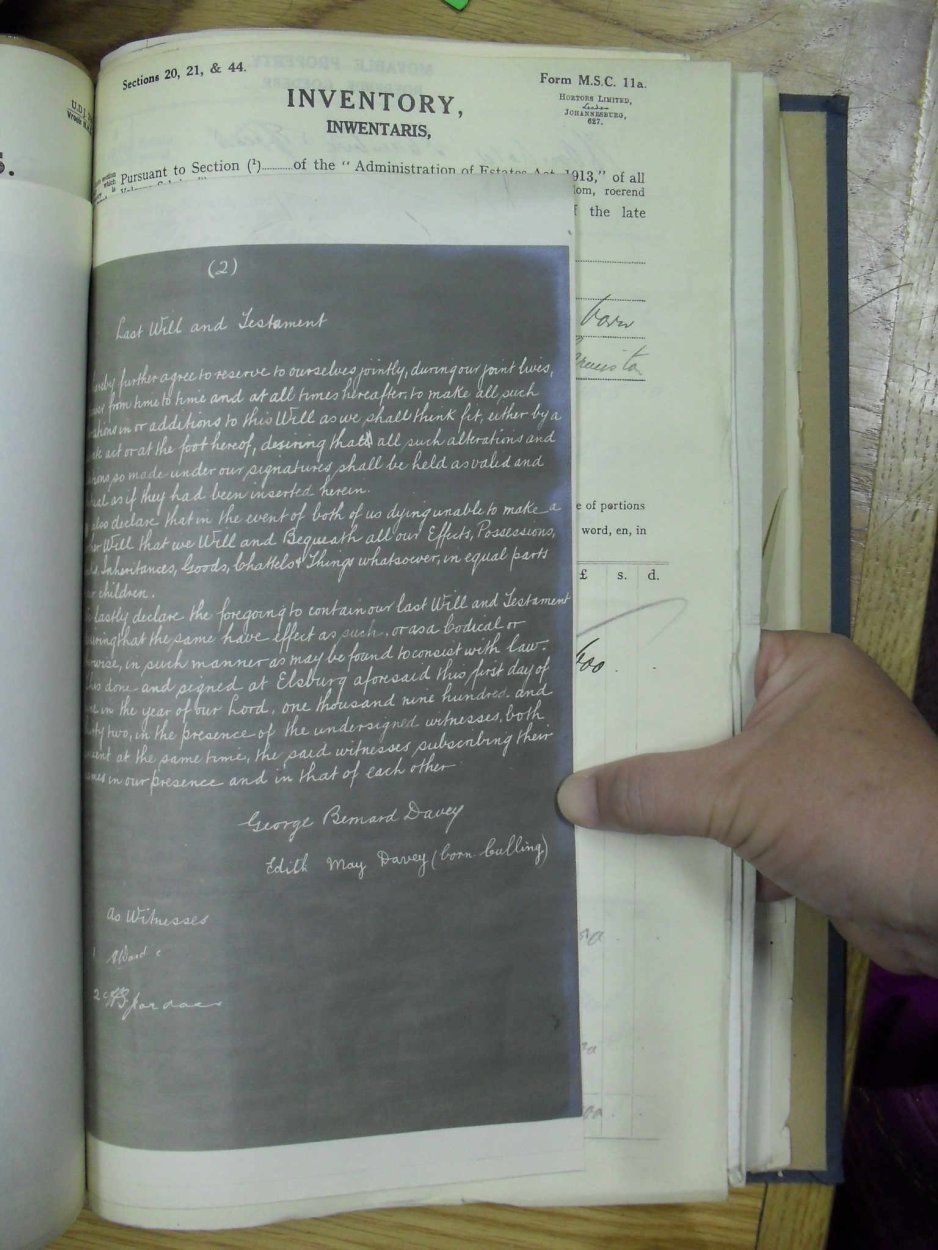 Sections 20, 21, & 44.
Form M.S.C. 11a.
HORTORS LIMITED,
JOHANNESBURG,
627.
INVENTORY,
INWENTARIS,
Pursuant to Section (¹)..........of the “ Administration of Estates Act, 1913,” of all
roerend
the late
born
(2)
Last Will and Testament
further agree to reserve to ourselves jointly, during our joint lives,
from time to time and at all times hereafter, to make all such
in or additions to this Will as we shall think fit, either by a
act or at the foot hereof, desiring that all such alterations and
so made under our signatures shall be held as valid and
as if they had been inserted herein.
also declare that in the event of both of us dying unable to make a
Will that we Will and Bequeath all our Effects, Posessions,
Inheritances, Goods, Chattels & Things whatsoever, in equal parts
children.
lastly declare the foregoing to contain our last Will and Testament
that the same have effect as such, or as a Codical or
in such manner as may be found to consist with law.
done and signed at Elsburg aforesaid this first day of
in the year of our Lord, one thousand nine hundred and
two, in the presence of the undersigned witnesses, both
at the same time, the said witnesses subscribing their
in our presence and in that of each other
George Bernard Davey
Edith May Davey (born Culling)
As Witnesses
1
2
e of portions
word, en, in
£ s. d.